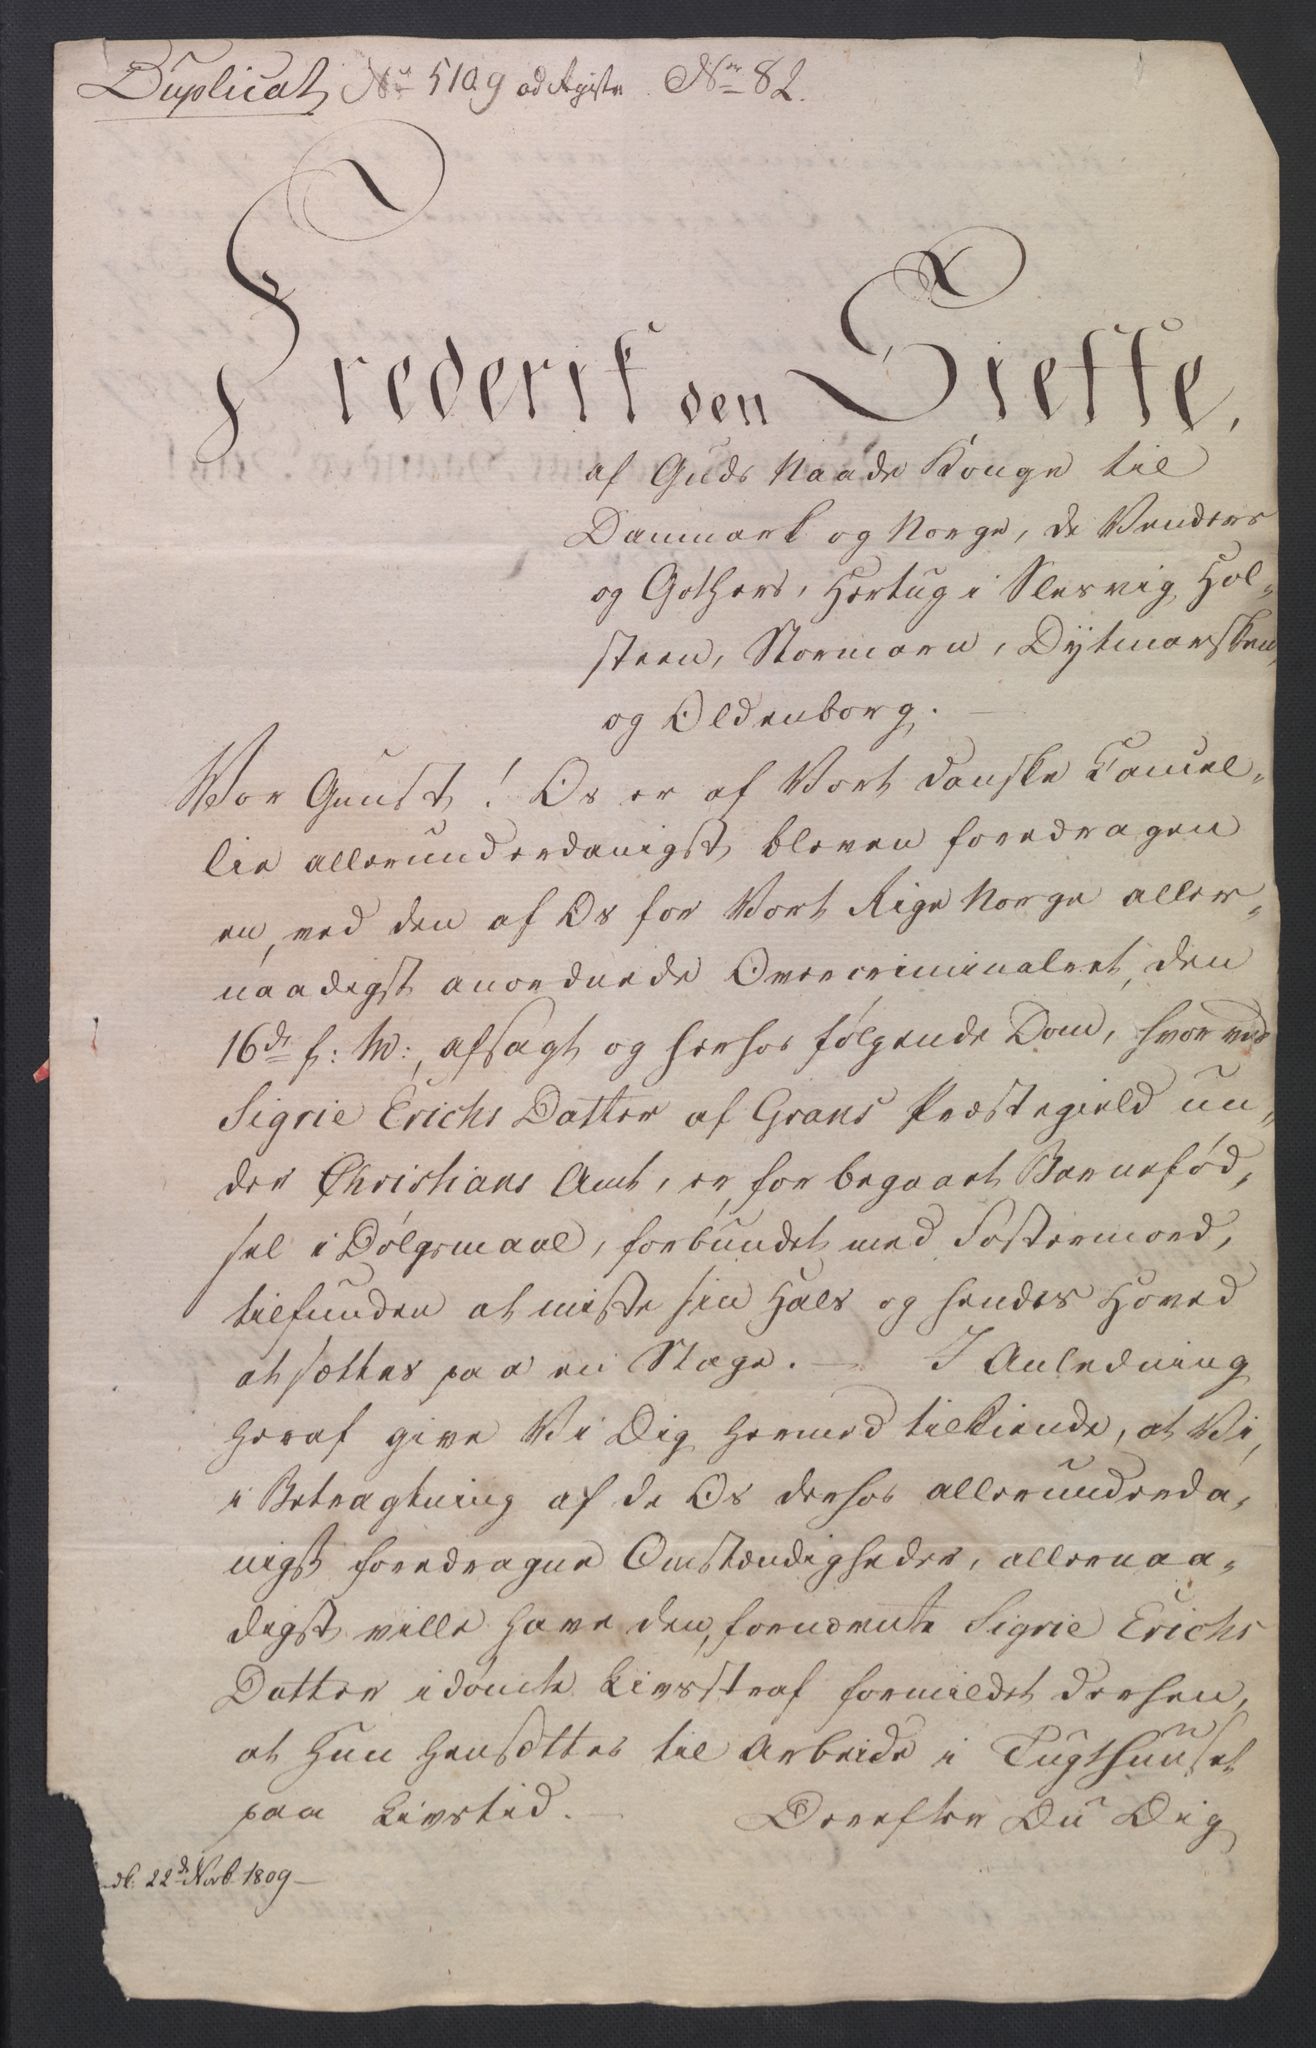 Duplicat No 5109 ad Registr. Nr 82.
Frederik den Siette,
af Guds Naade Konge til
Danmark og Norge, de Venders
og Gothers, Hertug i Slesvig, Hol-
steen, Stormarn, Dytmarsken
og Oldenborg.
Vor Gunst! Os er af Vort danske Cancel-
lie allerunderdanigst bleven foredragen
en, ved den af Os for Vort Rige Norge aller-
naadigst anordnede Overcriminalret, den
16de f: M:, afsagt og herhos følgende Dom, hvorved
Sigrie Erichs Datter af Grans Præstegield un-
der Christians Amt, er, for begaaet Barnefød-
sel i Dølgsmaal, forbundet med Fostermord,
tilfunden at miste sin Hals og hendes Hoved
at sættes paa en Stage. — I Anledning
heraf give Vi Dig hermed tilkiende, at Vi,
i Betragtning af de Os derhos allerunderda-
nigst foredragne Omstændigheder, allernaa-
digst ville have den, fornævnte Sigrie Erichs
Datter idømte Livsstraf formildet derhen,
at hun hensættes til Arbeide i Tugthuuset
paa Livstid. — Derefter Du Dig
22d Novb 1809 —